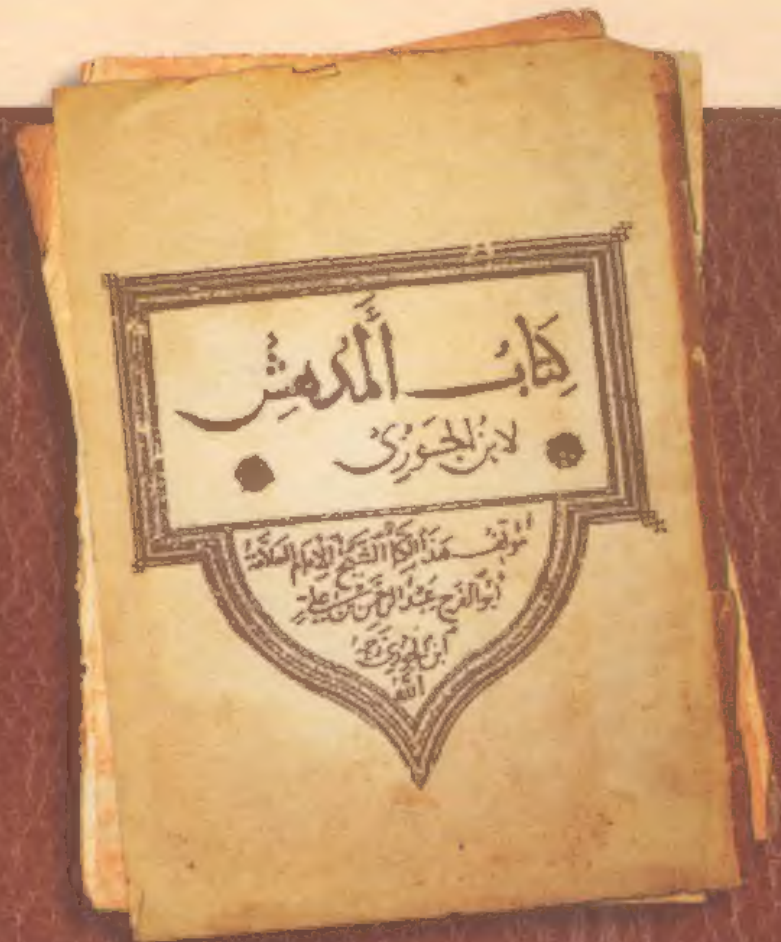 كِتَابُ المُدهِش
لابن الجَوزِي
مُؤلِّف هَذا الكتاب الشَّيخُ الإمام العَلامَةُ
أبُو الفَرج عَبدُ الرَّحمن بن عَلي
ابن الجَوزِي رَحِمَهُ
اللهُ